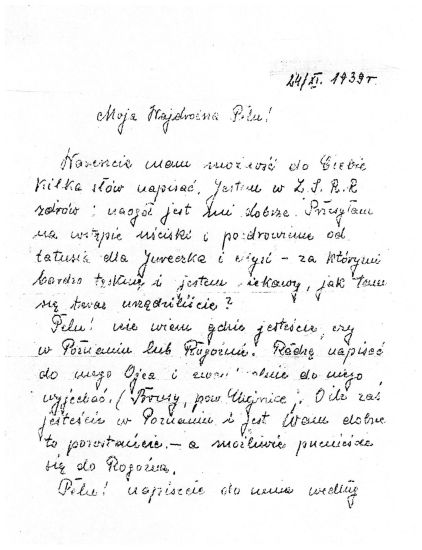 24/XI. 1939 r
Moja Najdroższa Pelu!
Nareszcie mam możność do Ciebie
kilka słów napisać. Jestem w Z.S.R.R
zdrów i naogół jest mi dobrze. Przesyłam
na wstępie uściski i pozdrowienia od
tatusia dla Jureczka i – za którymi
bardzo tęsknię i jestem ciekawy, jak tam
się teraz urządziliście?
Pelu! nie wiem gdzie jesteście, czy
w Poznaniu lub Rogoźnie. Radzę napisać
do mego Ojca i do niego
wyjechać. (Brusy, pow. Chojnice). O ile zaś
jesteście w Poznaniu i jest Wam dobrze
to pozostańcie – a możliwie
się do Rogoźna.
Pelu! napiszcie do mnie według